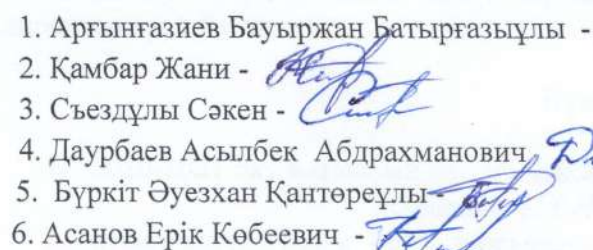 1. Арғынғазиев Бауыржан Батырғазыұлы -
2. Қамбар Жани -
3. Съездұлы Сәкен -
4. Даурбаев Асылбек Абдрахманович
5. Бүркіт Әуезхан Қантөреұлы-
6. Асанов Ерік Көбеевич -